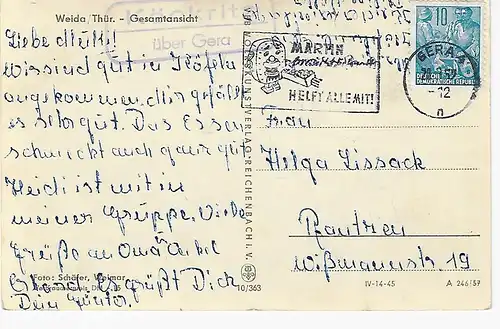 Weida Thür. - Gesamtansicht
über Gera
Liebe Mutti!
Wir sind gut in
angekommen. Mir gefällt
es sehr gut. Das Essen
schmeckt auch ganz gut
Heidi ist mit in
meiner Gruppe. Viele
Grüße an Oma
Es grüßt Dich
Dein Günter.
Foto: Schäfer, Weimar
VOLKSKUNSTVERLAG REICHENBACH I. V.
10/363
MARTIN
HELFT ALLE MIT!
GERA
12
n
10
DEUTSCHE
DEMOKRATISCHE REPUBLIK
Frau
Helga Lissack
Bautzen
Wißmannstr. 19
IV-14-45
A 246/59